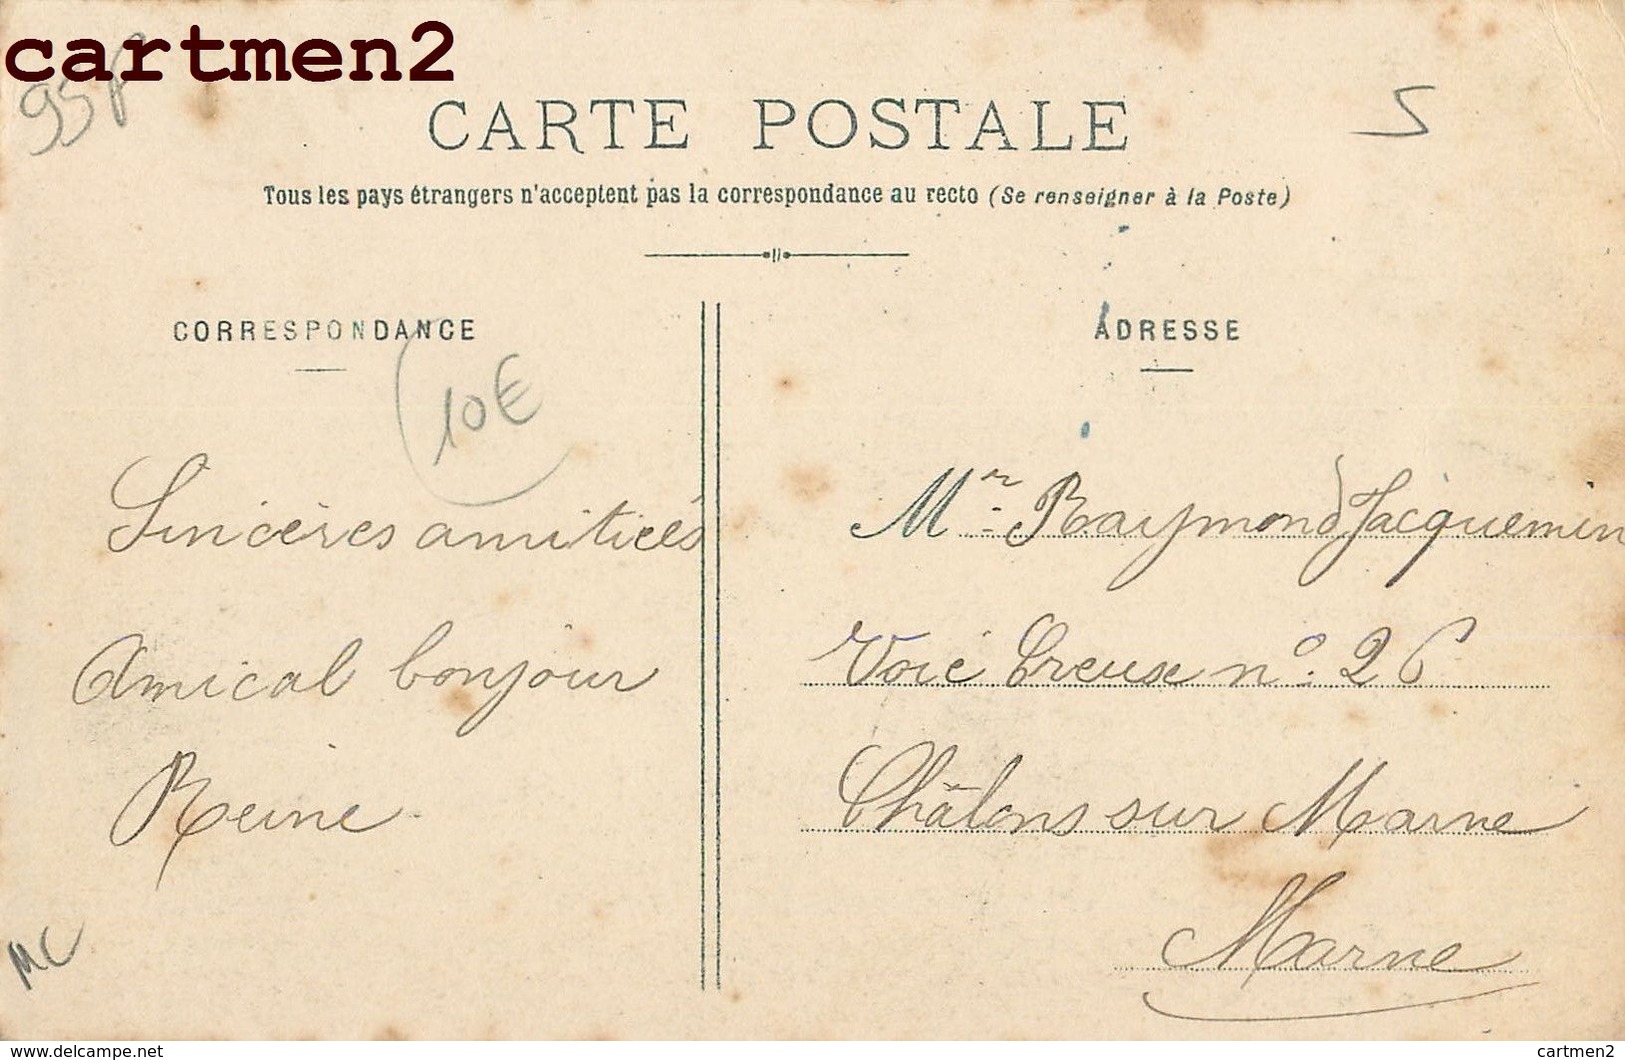 cartmen2
95F
CARTE POSTALE
Tous les pays étrangers n'acceptent pas la correspondance au recto (Se renseigner à la Poste)
CORRESPONDANCE
10€
Sincères amitiés
Amical bonjour
Reine
MC
ADRESSE
Mr Raymond Jacquemin
Voie Creuse no. 26
Châlons sur Marne
Marne
www.delcampe.net
cartmen2